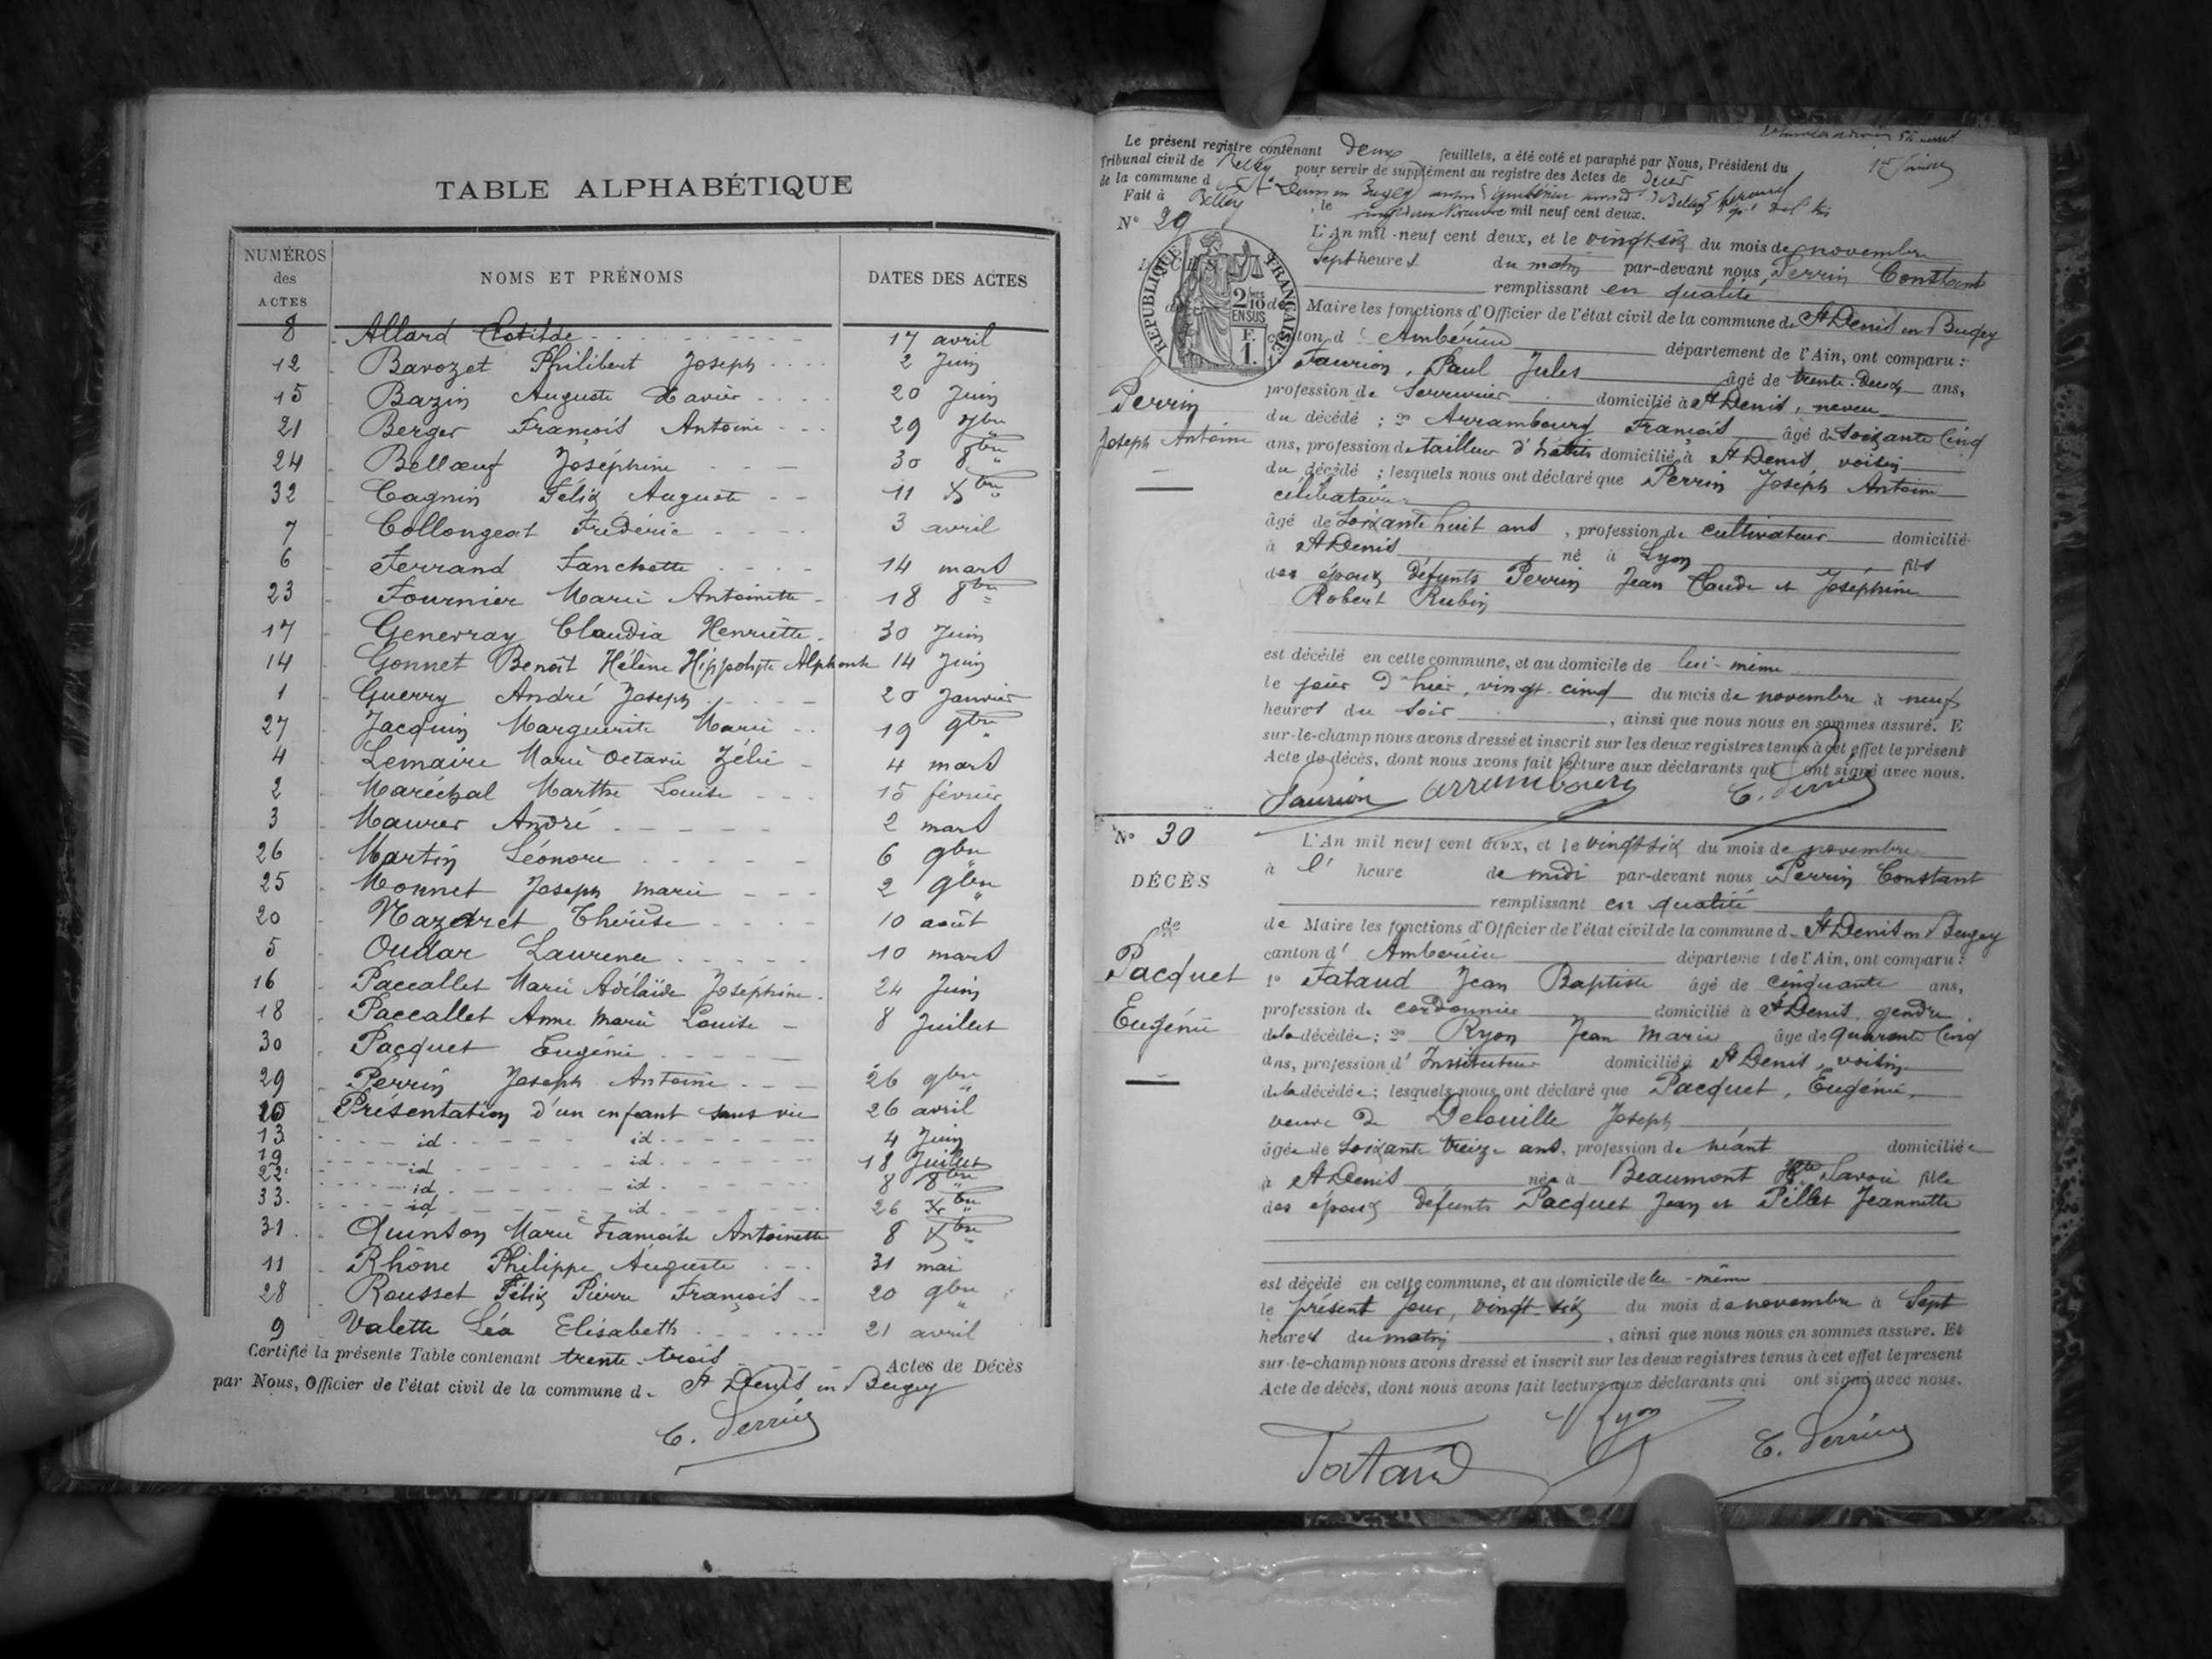 TABLE ALPHABÉTIQUE
NUMÉROS des ACTES NOMS ET PRÉNOMS DATES DES ACTES
8 Allard Clotilde 17 avril
12 Barozet Philibert Joseph 2 Juin
15 Bazin Auguste Xavier 20 Juin
21 Berger François Antoine 29 7bre
24 Bellœuf Joséphine 30 8bre
32 Cagnin Félix Auguste 11 Xbre
7 Collongeat Frédéric 3 avril
6 Ferrand Fanchette 14 mars
23 Fournier Marie Antoinette 18 8bre
17 Generray Claudia Henriette 30 Juin
14 Gonnet Benoît Hélène Hippolyte Alphonse 14 Juin
1 Guerry André Joseph 20 Janvier
27 Jacquin Marguerite Marie 19 9bre
4 Lemaire Marie Octavie Zélie 4 mars
2 Maréchal Marthe Louise 15 février
3 Maurer André 2 mars
26 Martin Léonore 6 9bre
25 Monnet Joseph marie 2 9bre
20 Nazdret Thérèse 10 août
5 Oudar Laurence 10 mars
16 Paccallet Marie Adélaïde Joséphine 24 Juin
18 Paccallet Anne Marie Louise 8 Juillet
30 Pacquet Eugénie
29 Perrin Joseph Antoine 26 9bre
10 Présentation d'un enfant sans vie 26 avril
13 id id 4 Juin
19 id id 18 Juillet
22 id id 8 8bre
33 id id 26 Xbre
31 Quinson Marie Françoise Antoinette 8 Xbre
11 Rhône Philippe Auguste 31 mai
28 Rousset Félix Pierre François 20 9bre
9 Valette Léa Elisabeth 21 avril
Certifié la présente Table contenant trente-trois Actes de Décès
par Nous, Officier de l'état civil de la commune de St Denis en Bugey
C. Perrin
Le présent registre contenant Deux feuillets, a été coté et paraphé par Nous, Président du
Tribunal civil de Belley pour servir de supplément au registre des Actes de Décès
de la commune de St Denis en Bugey
Fait à Belley, le mil neuf cent deux.
N° 29
RÉPUBLIQUE FRANÇAISE
2/10 MES EN SUS
F. 1.
L'An mil-neuf cent deux, et le vingt-six du mois de novembre
Sept heures du matin par-devant nous Perrin Constant
remplissant en qualité
de Maire les fonctions d'Officier de l'état civil de la commune de St Denis en Bugey
canton d Ambérieu département de l'Ain, ont comparu :
Faurion, Paul Jules âgé de trente-deux ans,
Perrin
Joseph Antoine
profession de Serrurier domicilié à St Denis, neveu
du décédé ; 2° Arrambourg François âgé de soixante cinq
ans, profession de tailleur d'habits domicilié à St Denis, voisin
du décédé ; lesquels nous ont déclaré que Perrin Joseph Antoine
célibataire
âgé de soixante huit ans, profession de cultivateur domicilié
à St Denis né à Lyon fils
des époux défunts Perrin Jean Claude et Joséphine
Robert Rubin
est décédé en cette commune, et au domicile de lui-même
le jour d'hier, vingt-cinq du mois de novembre à neuf
heures du soir, ainsi que nous nous en sommes assuré. E
sur-le-champ nous avons dressé et inscrit sur les deux registres tenus à cet effet le présent
Acte de décès, dont nous avons fait lecture aux déclarants qui ont signé avec nous.
Faurion Arrambourg C. Perrin
N° 30
DÉCÈS
de
Pacquet
Eugénie
L'An mil neuf cent deux, et le vingt-six du mois de novembre
à l' heure de midi par-devant nous Perrin Constant
remplissant en qualité
de Maire les fonctions d'Officier de l'état civil de la commune d. St Denis en Bugey
canton d' Ambérieu département de l'Ain, ont comparu :
1° Fataud Jean Baptiste âgé de cinquante ans,
profession de cordonnier domicilié à St Denis gendre
de la décédée ; 2° Ryon Jean Marie âgé de quarante cinq
ans, profession d' Instituteur domicilié à St Denis, voisin
de la décédée ; lesquels nous ont déclaré que Pacquet, Eugénie,
veuve de Delouille Joseph
âgée de soixante treize ans, profession de néant domiciliée
à St Denis née à Beaumont Hte Savoie fille
des époux défunts Pacquet Jean et Pillet Jeannette
est décédé en cette commune, et au domicile de lui-même
le présent jour, vingt-six du mois de novembre à Sept
heures du matin, ainsi que nous nous en sommes assuré. Et
sur-le-champ nous avons dressé et inscrit sur les deux registres tenus à cet effet le présent
Acte de décès, dont nous avons fait lecture aux déclarants qui ont signé avec nous.
Fataud Ryon C. Perrin